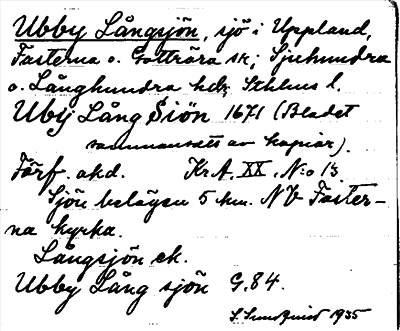 Ubby Långsjön, sjö i Uppland,
Fasterna o. Gottröra sk; Sjuhundra
o. Långhundra hdr Sthlms l.
Ubÿ Lång Siön 1671 (Bladet
sammansatt av kopior).
Förf. okd. Kr.A. XX. N:o 13
Sjön belägen 5 km. NV Faster-
na kyrka.
Långsjön ek.
Ubby Lång sjön G.84.
S. Sundquist 1935